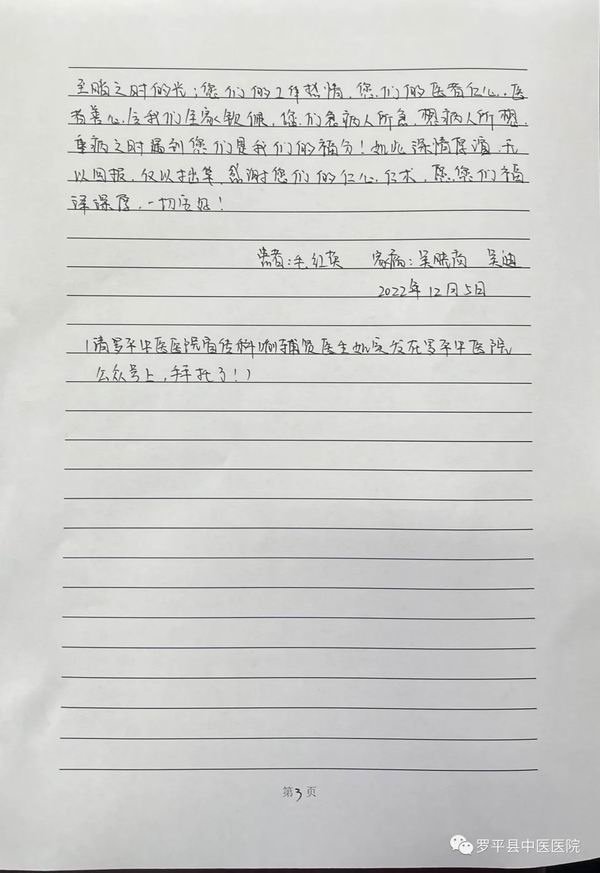 至暗之时的光；您们的工作热情，您们的医者仁心，医
者善心，令我们全家钦佩，您们急病人所急，想病人所想，
重病之时遇到您们是我们的福分！如此深情厚谊，无
以回报，仅以拙笔，感谢您们的仁心仁术，愿您们福
泽深厚，一切安好！
患者：毛红英 家属：吴晓 吴迪
2022年12月5日
（请罗平中医医院宣传科 医生如实发在罗平中医院
公众号上，拜托了！）
第3页
罗平县中医医院